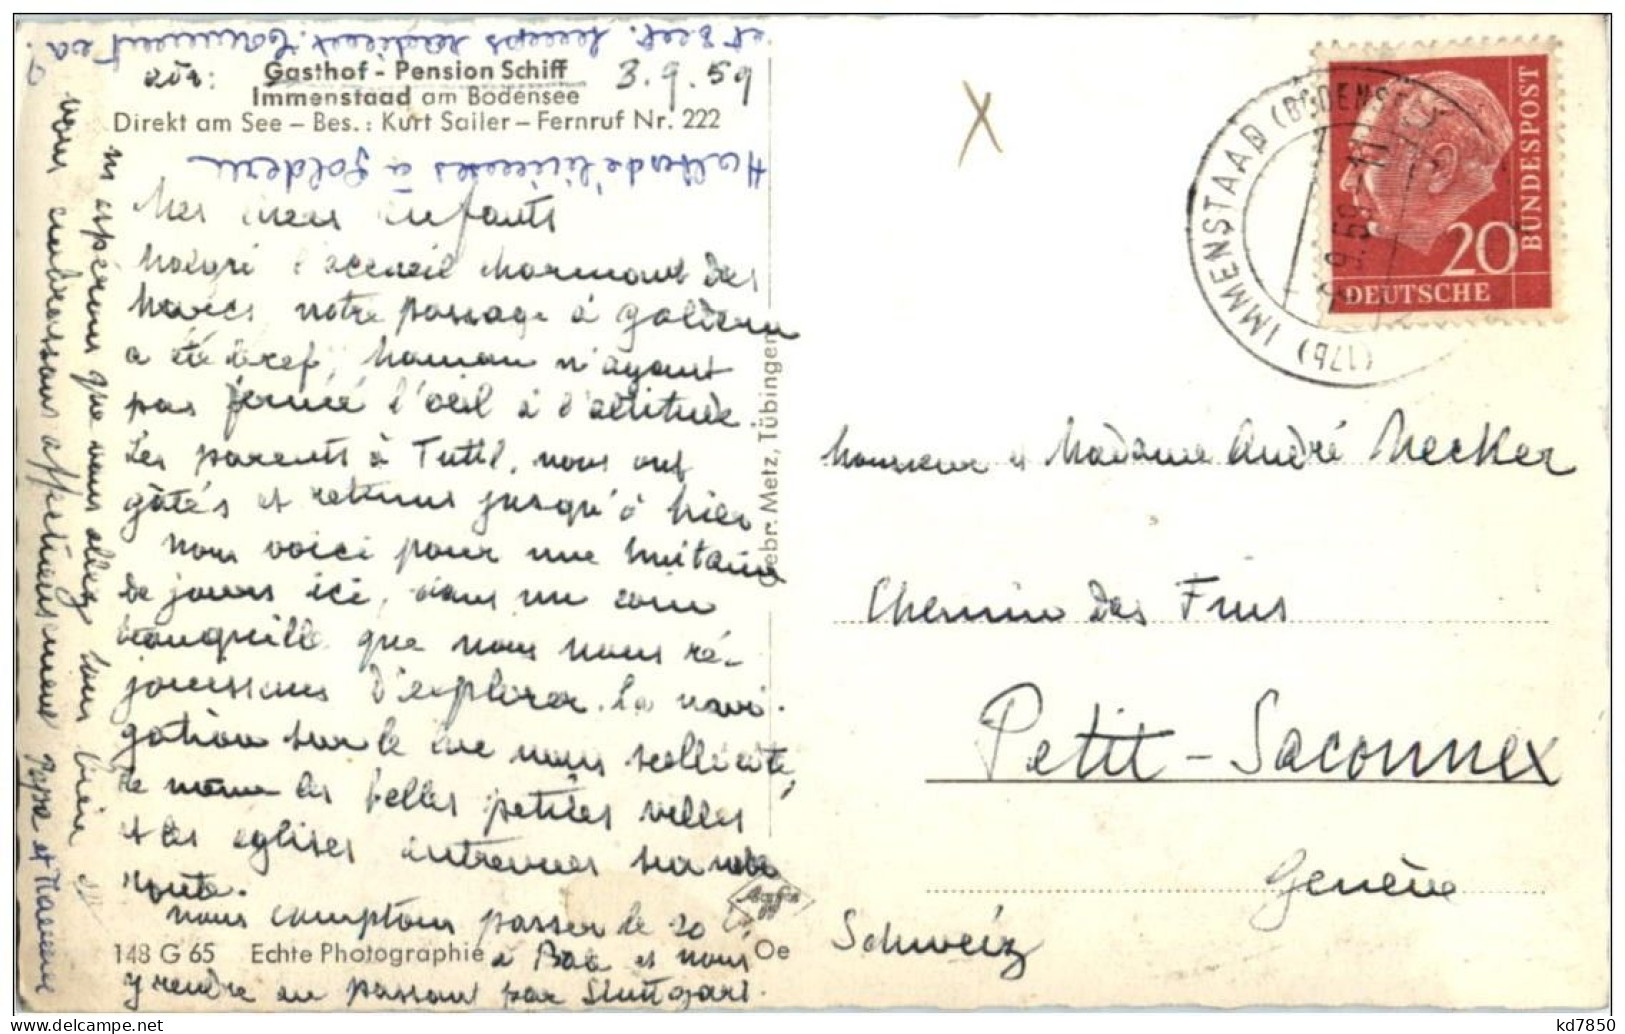 adr: Gasthof - Pension Schiff 3.9.59
Immenstaad am Bodensee
Direkt am See – Bes.: Kurt Sailer – Fernruf Nr. 222
Mes chers Enfants
Malgré l'accueil charmant des
notre passage à Goldern
a été bref, Maman n'ayant
pas fermé l'œil à l'altitude.
Les parents à Tuttl. nous ont
gâtés et retenus jusqu'à hier
Nous voici pour une huitaine
de jours ici, dans un coin
tranquille que nous nous ré-
jouissons d'explorer. La navi-
gation sur le lac nous sollicite,
de même les belles petites villes
et les églises entrevues sur notre
route.
Nous comptons passer le 20
à et nous
y rendre en passant par Stuttgart.
ns espérons que vous allez tous bien et
vous embrassons affectueusement Papa et Maman
Gebr. Metz, Tübingen
148 G 65 Echte Photographie
Oe
(17b) IMMENSTAAD (BODENSEE)
9.59.-11
20
DEUTSCHE
BUNDESPOST
Monsieur et Madame André Necker
Chemin des Frus
Petit-Saconnex
Genève
Schweiz
kd7850